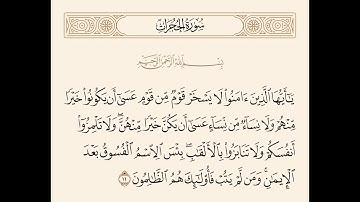 سُورَةُ الحُجُرَاتِ
بِسْمِ اللَّهِ الرَّحْمَٰنِ الرَّحِيمِ
يَٰٓأَيُّهَا الَّذِينَ ءَامَنُوا لَا يَسْخَرْ قَوْمٌ مِّن قَوْمٍ عَسَىٰٓ أَن يَكُونُوا خَيْرًا
مِّنْهُمْ وَلَا نِسَآءٌ مِّن نِّسَآءٍ عَسَىٰٓ أَن يَكُنَّ خَيْرًا مِّنْهُنَّ ۖ وَلَا تَلْمِزُوٓا
أَنفُسَكُمْ وَلَا تَنَابَزُوا بِالْأَلْقَٰبِ ۖ بِئْسَ الِاسْمُ الْفُسُوقُ بَعْدَ
الْإِيمَٰنِ ۚ وَمَن لَّمْ يَتُبْ فَأُولَٰٓئِكَ هُمُ الظَّٰلِمُونَ ١١